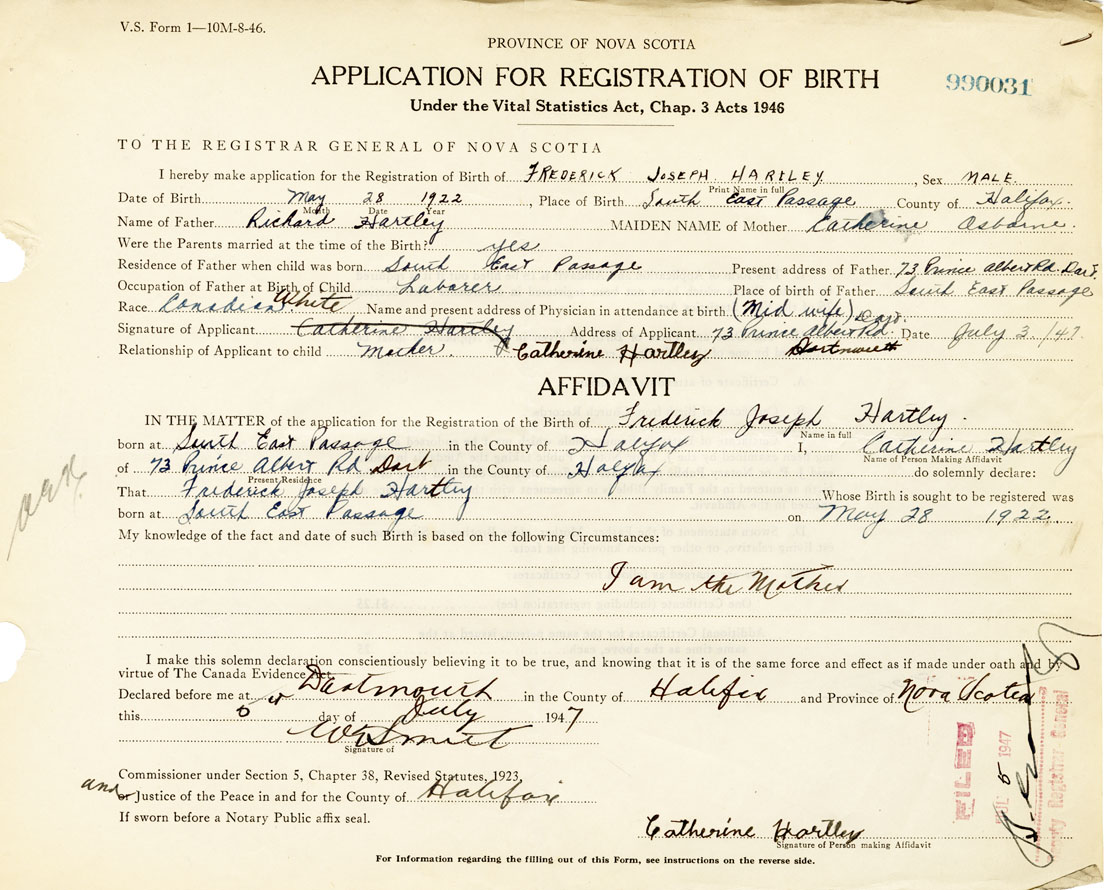 V.S. Form 1—10M-8-46.
PROVINCE OF NOVA SCOTIA
APPLICATION FOR REGISTRATION OF BIRTH
990031
Under the Vital Statistics Act, Chap. 3 Acts 1946
TO THE REGISTRAR GENERAL OF NOVA SCOTIA
I hereby make application for the Registration of Birth of FREDERICK JOSEPH HARTLEY, Sex MALE
Print Name in full
Date of Birth May 28 1922, Place of Birth South East Passage County of Halifax.
Month Date Year
Name of Father Richard Hartley MAIDEN NAME of Mother Catherine Osborne.
Were the Parents married at the time of the Birth? yes
Residence of Father when child was born South East Passage Present address of Father 73 Prince Albert Rd. Dart.
Occupation of Father at Birth of Child Laborer Place of birth of Father South East Passage
Race Canadian White Name and present address of Physician in attendance at birth (Mid wife)
Signature of Applicant Catherine Hartley Address of Applicant 73 Prince Albert Rd. Dart. Date July 3./47.
Relationship of Applicant to child Mother. Catherine Hartley Dartmouth
AFFIDAVIT
IN THE MATTER of the application for the Registration of the Birth of Frederick Joseph Hartley.
Name in full
born at South East Passage in the County of Halifax I, Catherine Hartley
Name of Person Making Affidavit
of 73 Prince Albert Rd Dart in the County of Halifax do solemnly declare:
Present Residence
That Frederick Joseph Hartley Whose Birth is sought to be registered was
born at South East Passage on May 28 1922.
My knowledge of the fact and date of such Birth is based on the following Circumstances:
I am the Mother
I make this solemn declaration conscientiously believing it to be true, and knowing that it is of the same force and effect as if made under oath and by
virtue of The Canada Evidence Act.
Declared before me at Dartmouth in the County of Halifax and Province of Nova Scotia
this 5 day of July 1947
Signature of
Commissioner under Section 5, Chapter 38, Revised Statutes, 1923
and
or Justice of the Peace in and for the County of Halifax
If sworn before a Notary Public affix seal.
Catherine Hartley
Signature of Person making Affidavit
For Information regarding the filling out of this Form, see instructions on the reverse side.
FILED
JUL 5 1947
Deputy Registrar General